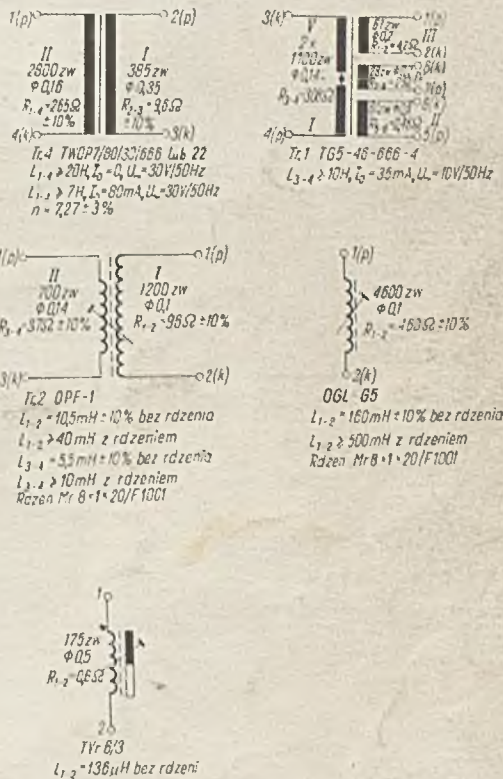 1(p) 2(p)
II I
2800zw 385zw
Φ0,16 Φ0,35
±10% ±10%
4(k) 3(k)
Tr.4 TWOP7/80/30/666 lub 22
L₁₋₄ ≥ 20H, I₀=0, U~=30V/50Hz
7H, I₀=80mA, U~=30V/50Hz
n = 7,27 ± 3%
3(k) 1(p)
V III
2× 2(k)
1100zw 6(k)
Φ0,14
4(p) I II 5(p)
Tr.1 TG5-46-666-4
L₃₋₄ ≥ 10H, I₀=35mA, U~=10V/50Hz
1(p) 1(p)
II I
700zw 1200zw
Φ0,14 Φ0,1
R₃₋₄=37Ω ±10% R₁₋₂=96Ω ±10%
3(k) 2(k)
Tr.2 OPF-1
L₁₋₂ = 10,5mH ±10% bez rdzenia
L₁₋₂ ≥ 40mH z rdzeniem
L₃₋₄ = 5,5mH ±10% bez rdzenia
L₃₋₄ ≥ 10mH z rdzeniem
Rdzeń Mr 8×1×20/F1001
1(p)
4600zw
Φ0,1
R₁₋₂=460Ω ±10%
2(k)
OGL-G5
L₁₋₂ = 160mH ±10% bez rdzenia
L₁₋₂ ≥ 500mH z rdzeniem
Rdzeń Mr 8×1×20/F1001
1
175zw
Φ0,5
R₁₋₂=0,6Ω
2
TVr 6/3
L₁₋₂ = 136μH bez rdzeni